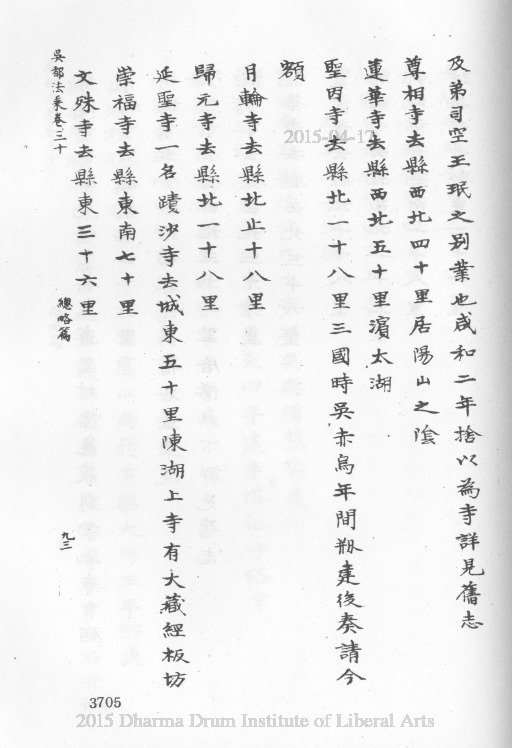 及弟司空王珉之别業也咸和二年捨以為寺詳見舊志
尊相寺去縣西北四十里居陽山之陰
蓮華寺去縣西北五十里濵太湖
聖因寺去縣北一十八里三國時吳赤烏年間剏建後奏請今
額
月輪寺去縣北止十八里
歸元寺去縣北一十八里
延聖寺一名蹟沙寺去城東五十里陳湖上寺有大藏經板坊
崇福寺去縣東南七十里
文殊寺去縣東三十六里
吳都法乘卷三十
總略篇
九三
3705
2015-04-17
2015 Dharma Drum Institute of Liberal Arts